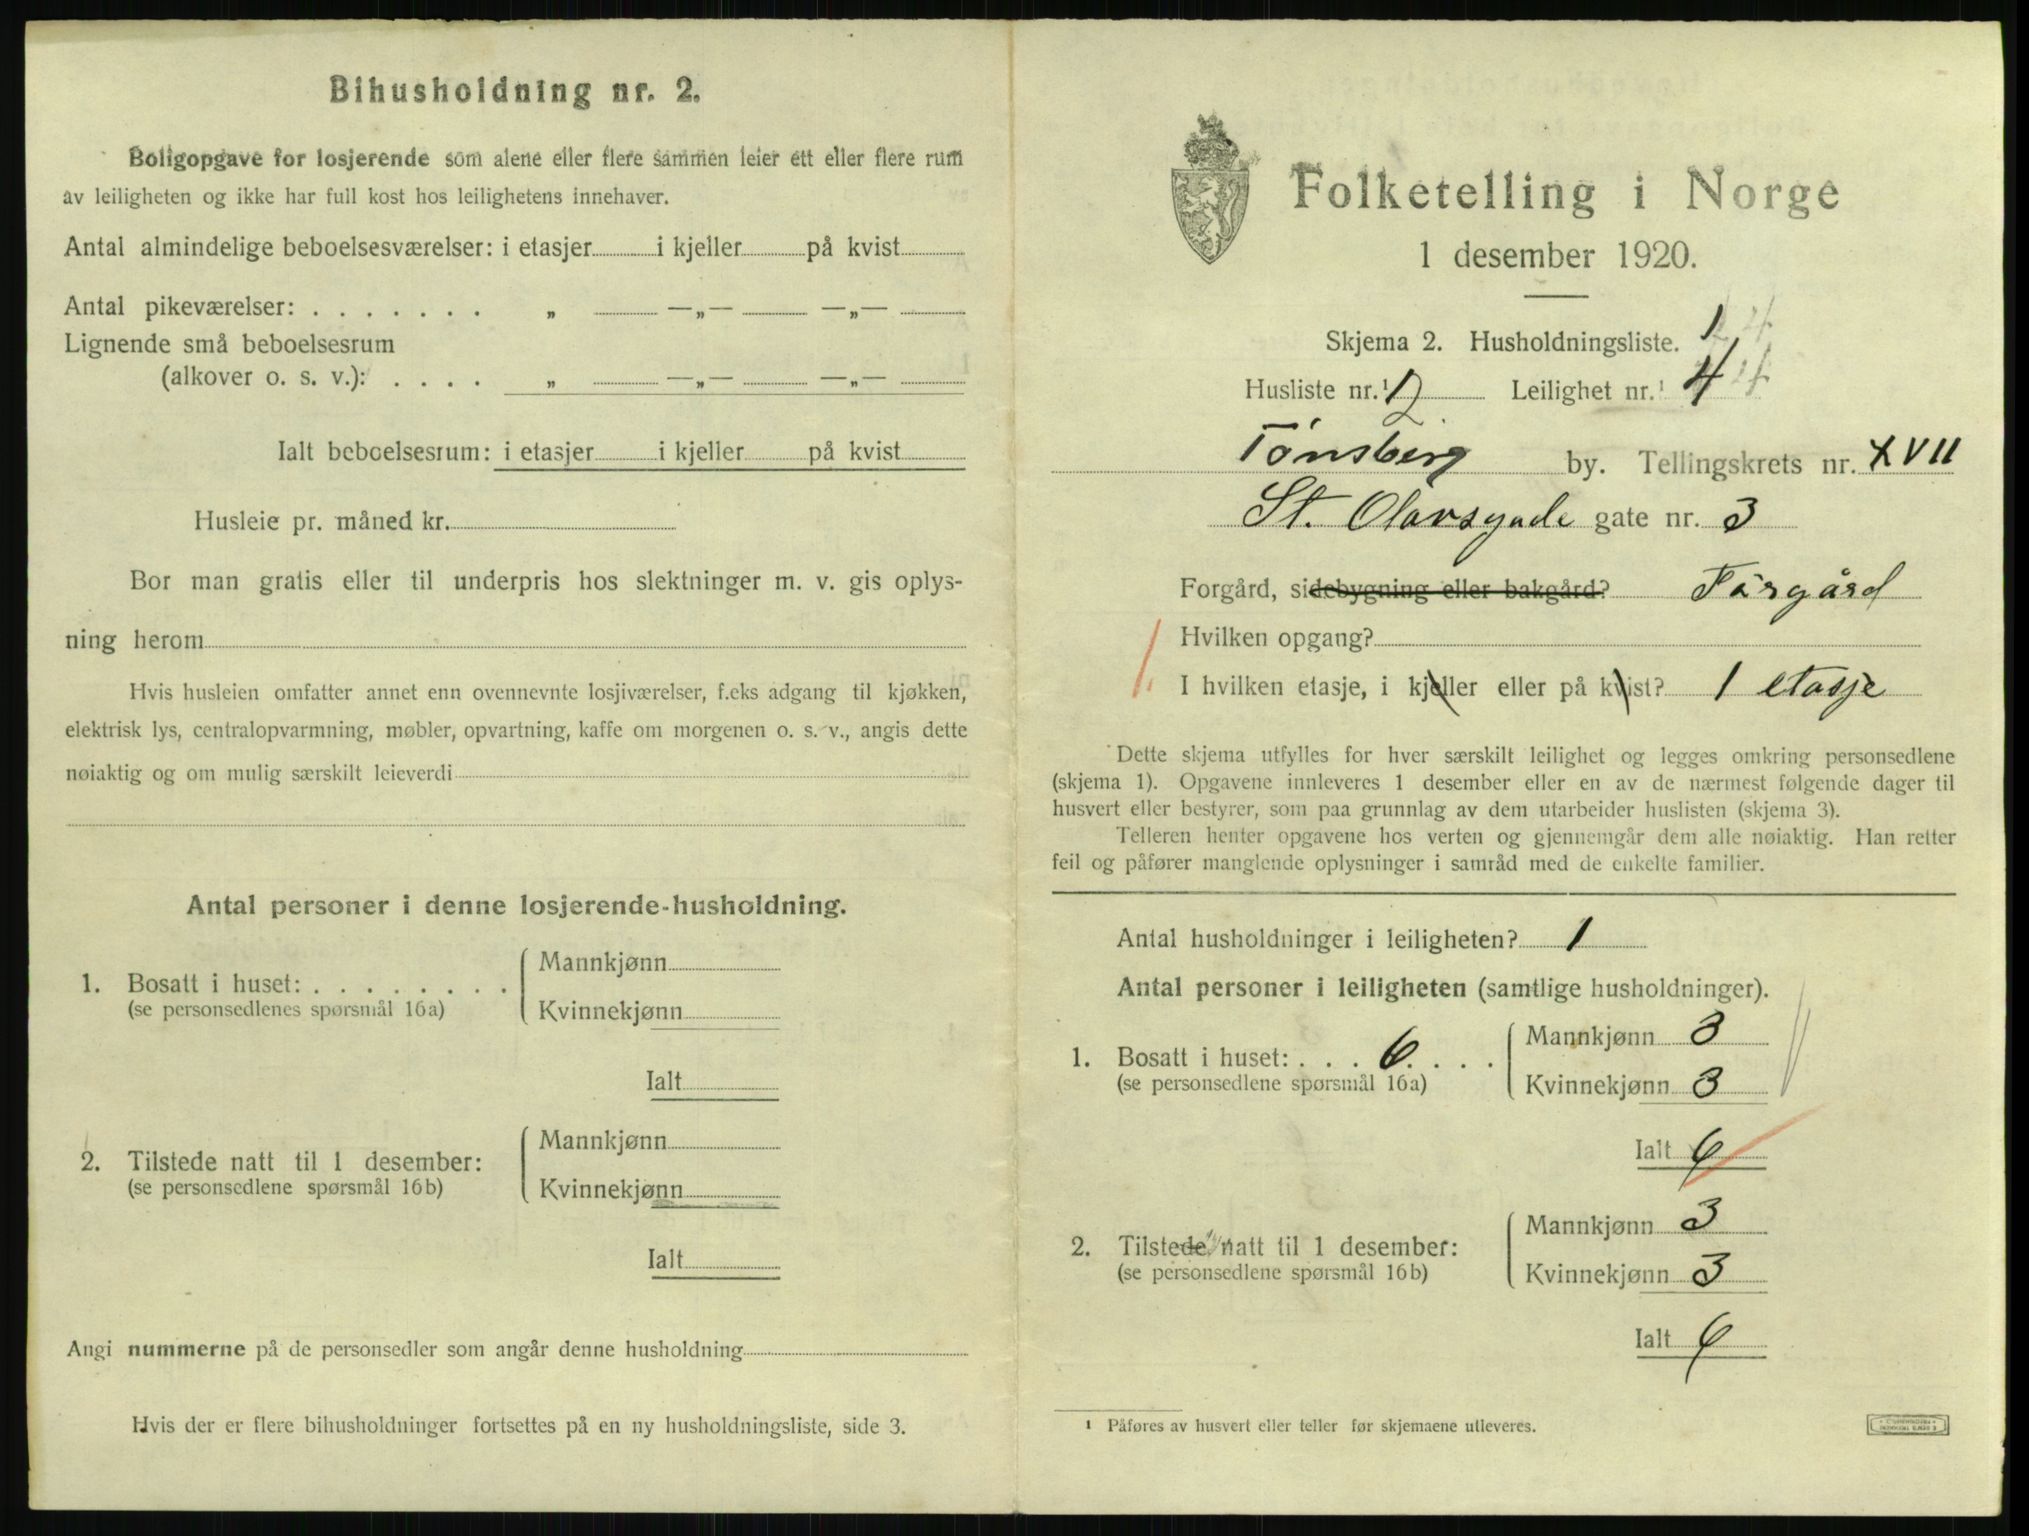 Bihusholdning nr. 2.
Boligopgave for losjerende som alene eller flere sammen leier ett eller flere rum
av leiligheten og ikke har full kost hos leilighetens innehaver.
Antal almindelige beboelsesværelser: i etasjer i kjeller på kvist
Antal pikeværelser: . . . . . . . „ —„— —„—
Lignende små beboelsesrum
(alkover o. s. v.): . . . . „ —„— —„—
Ialt beboelsesrum: i etasjer i kjeller på kvist
Husleie pr. måned kr.
Bor man gratis eller til underpris hos slektninger m. v. gis oplys-
ning herom
Hvis husleien omfatter annet enn ovennevnte losjiværelser, f.eks adgang til kjøkken,
elektrisk lys, centralopvarmning, møbler, opvartning, kaffe om morgenen o. s. v., angis dette
nøiaktig og om mulig særskilt leieverdi
Antal personer i denne losjerende-husholdning.
1. Bosatt i huset: . . . . . . . . Mannkjønn
(se personsedlenes spørsmål 16a) Kvinnekjønn
Ialt
2. Tilstede natt til 1 desember: Mannkjønn
(se personsedlene spørsmål 16b) Kvinnekjønn
Ialt
Angi nummerne på de personsedler som angår denne husholdning
Hvis der er flere bihusholdninger fortsettes på en ny husholdningsliste, side 3.
Folketelling i Norge
1 desember 1920.
Skjema 2. Husholdningsliste. 1
Husliste nr.¹ 12 Leilighet nr.¹ 4
Tønsberg by. Tellingskrets nr. XVII
St. Olavsgade gate nr. 3
Forgård, sidebygning eller bakgård? Forgård
Hvilken opgang?
I hvilken etasje, i kjeller eller på kvist? 1 etasje
Dette skjema utfylles for hver særskilt leilighet og legges omkring personsedlene
(skjema 1). Opgavene innleveres 1 desember eller en av de nærmest følgende dager til
husvert eller bestyrer, som paa grunnlag av dem utarbeider huslisten (skjema 3).
Telleren henter opgavene hos verten og gjennemgår dem alle nøiaktig. Han retter
feil og påfører manglende oplysninger i samråd med de enkelte familier.
Antal husholdninger i leiligheten? 1
Antal personer i leiligheten (samtlige husholdninger).
1. Bosatt i huset: . . . 6. . . . Mannkjønn 3
(se personsedlene spørsmål 16a) Kvinnekjønn 3
Ialt 6
2. Tilstede natt til 1 desember: Mannkjønn 3
(se personsedlene spørsmål 16b) Kvinnekjønn 3
Ialt 6
¹ Påføres av husvert eller teller før skjemaene utleveres.